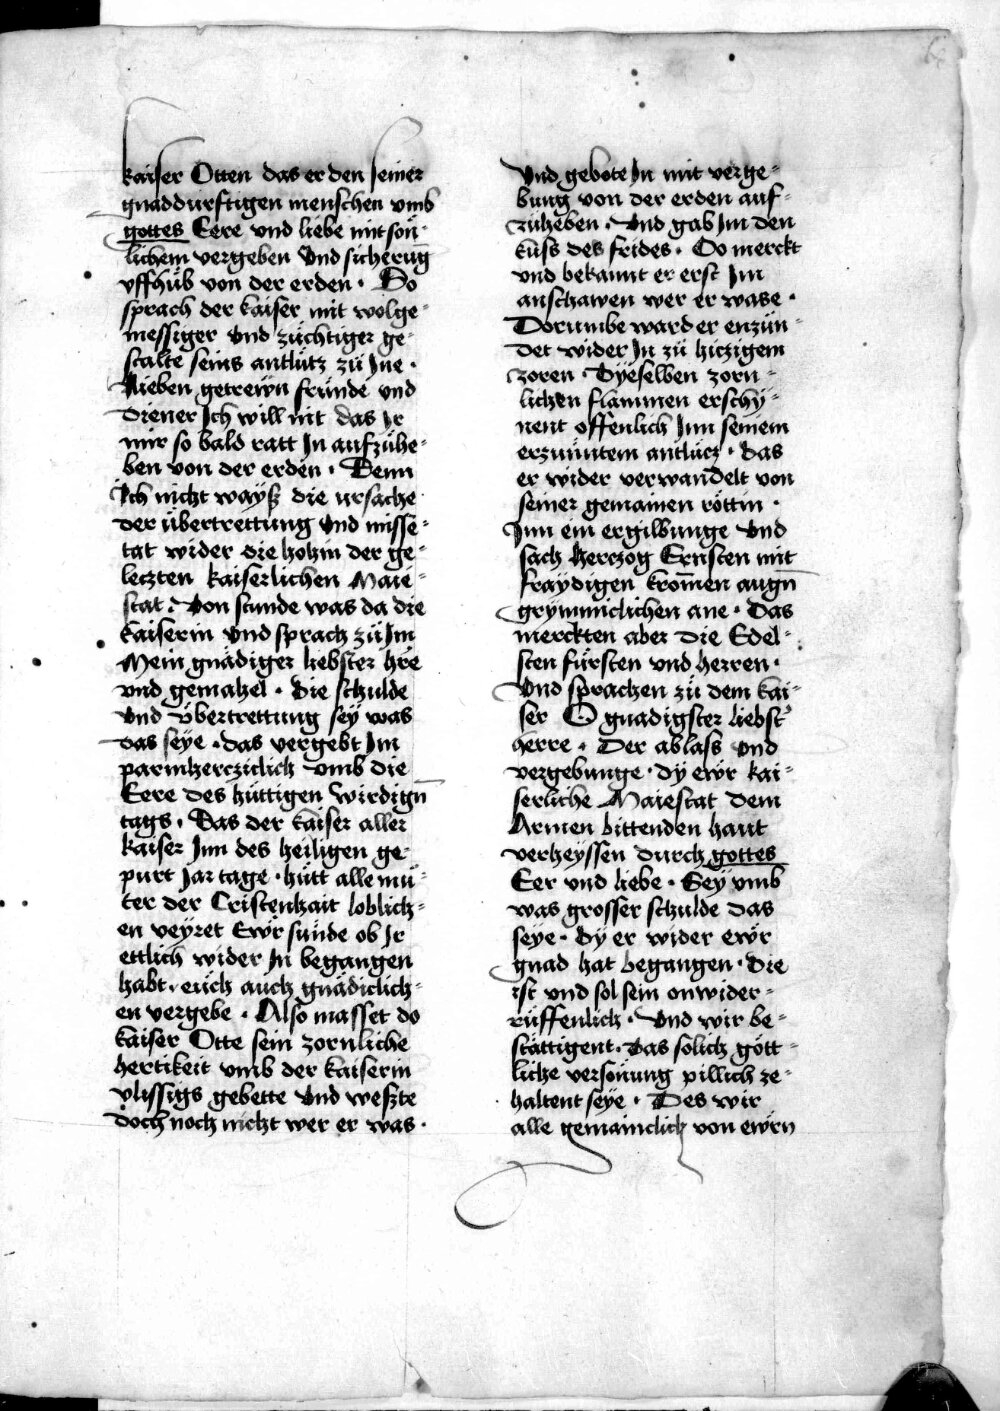 kaiser Otten das er den seiner
gnaddurftigen menschen vmb
gottes Eere vnd liebe mit sön-
lichem vergeben vnd sicherūg
vffhüb von der erden · Do
sprach der kaiser mit wolge-
messiger vnd züchtiger ge-
stalte seins antlütz zü Jne ·
Lieben getrewn fründe vnd
diener Ich will nit das Jr
mir so bald ratt Jn aufzühe-
ben von der erden · Denn
Ich nicht wayß die vrsache
der übertrettung vnd misse-
tat wider die hohin der ge-
leczten kaiserlichen Maie-
stat · Von stunde was da die
kaiserin vnd sprach zü Jm
Mein gnädiger liebster h're
vnd gemahel · die schulde
vnd übertrettung sey was
das seye · das vergebt Jm
parmhercziclich vmb die
Eere des hüttigen wirdign̄
tags · Das der kaiser aller
kaiser Jnn des heiligen ge-
purt Jar tage · hütt alle mü-
ter der Cristenhait loblich-
en veyret Ewr sünde ob Jr
ettlich wider Jn begangen
habt · eüch auch gnädiclich-
en vergebe · Also masset do
kaiser Otte sein zornliche
hertikeit vmb der kaiserin
vlissigs gebette vnd weßte
doch noch nicht wer er was ·
Vnd gebote Jn mit verge-
bung von der erden auf-
zuheben · Vnd gab Jm den
kuss des frides · Do merckt
vnd bekannt er erst Jm
anschawen wer er wase ·
Dorumbe ward er enzün-
det wider Jn zü hiczigem
zoren · Dyeselben zorn-
lichen flammen erschy-
nent offenlich Jnn seinem
erzunntem antlücz · das
er wider verwandelt von
seiner gemainen röttin ·
Jnn ein ergilbunge vnd
sach herczog Ernsten mit
fraydigen kromen augn̄
grymmiclichen ane · Das
merckten aber die Edel-
sten fürsten vnd herren ·
Vnd sprachen zü dem kai-
ser O gnadigster liebst'
herre · Der ablass vnd
vergebunge · dy ewr kai-
serliche Maiestat dem
Armen bittenden haut
verheyssen durch gottes
Eer vnd liebe · Sey vmb
was grosser schulde das
seye · dy er wider ewr
gnad hat begangen · die
ist vnd sol sein onwider-
rüffenlich · Vnd wir be-
stättigent · das solich gött-
liche versönung pillich ze-
haltent seye · Des wir
alle gemainclich von ewrn